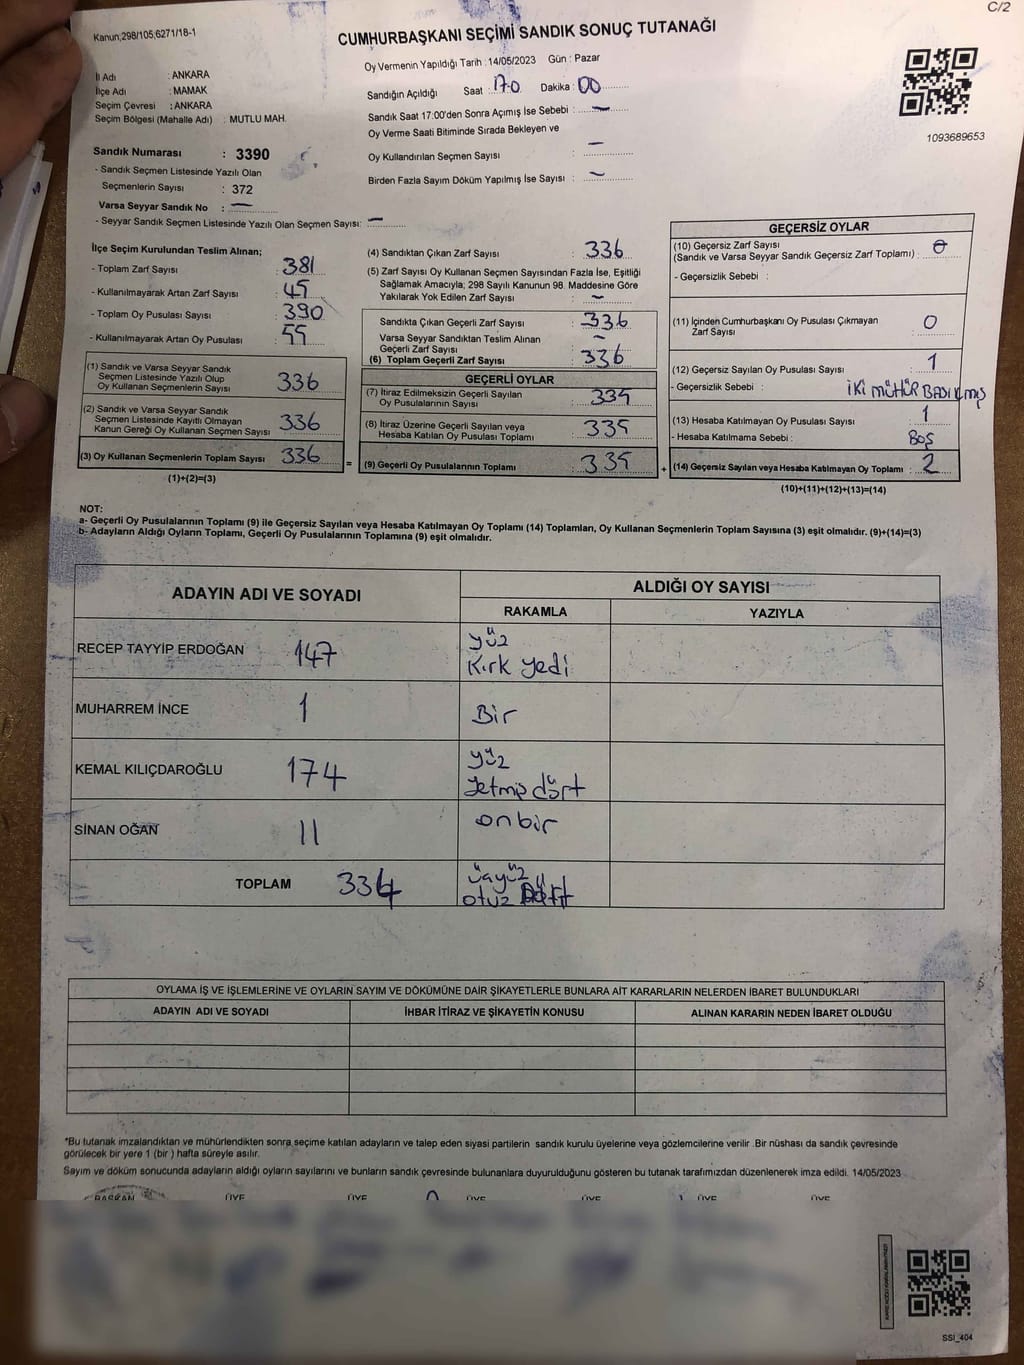 C/2
Kanun;298/105;6271/18-1
CUMHURBAŞKANI SEÇİMİ SANDIK SONUÇ TUTANAĞI
Oy Vermenin Yapıldığı Tarih : 14/05/2023 Gün : Pazar
İl Adı : ANKARA
İlçe Adı : MAMAK
Seçim Çevresi : ANKARA
Seçim Bölgesi (Mahalle Adı) : MUTLU MAH.
Sandığın Açıldığı Saat : 17.0 Dakika : 00
Sandık Saat 17:00'den Sonra Açımış İse Sebebi : —
Oy Verme Saati Bitiminde Sırada Bekleyen ve
Oy Kullandırılan Seçmen Sayısı : —
Birden Fazla Sayım Döküm Yapılmış İse Sayısı : —
1093689653
Sandık Numarası : 3390
- Sandık Seçmen Listesinde Yazılı Olan
Seçmenlerin Sayısı : 372
Varsa Seyyar Sandık No : —
- Seyyar Sandık Seçmen Listesinde Yazılı Olan Seçmen Sayısı: —
İlçe Seçim Kurulundan Teslim Alınan;
- Toplam Zarf Sayısı : 381
- Kullanılmayarak Artan Zarf Sayısı : 45
- Toplam Oy Pusulası Sayısı : 390
- Kullanılmayarak Artan Oy Pusulası : 55
(1) Sandık ve Varsa Seyyar Sandık
Seçmen Listesinde Yazılı Olup
Oy Kullanan Seçmenlerin Sayısı : 336
(2) Sandık ve Varsa Seyyar Sandık
Seçmen Listesinde Kayıtlı Olmayan
Kanun Gereği Oy Kullanan Seçmen Sayısı : 336
(3) Oy Kullanan Seçmenlerin Toplam Sayısı : 336
(1)+(2)=(3)
=
(4) Sandıktan Çıkan Zarf Sayısı : 336
(5) Zarf Sayısı Oy Kullanan Seçmen Sayısından Fazla İse, Eşitliği
Sağlamak Amacıyla; 298 Sayılı Kanunun 98. Maddesine Göre
Yakılarak Yok Edilen Zarf Sayısı : —
Sandıkta Çıkan Geçerli Zarf Sayısı : 336
Varsa Seyyar Sandıktan Teslim Alınan
Geçerli Zarf Sayısı : —
(6) Toplam Geçerli Zarf Sayısı : 336
GEÇERLİ OYLAR
(7) İtiraz Edilmeksizin Geçerli Sayılan
Oy Pusulalarının Sayısı :
(8) İtiraz Üzerine Geçerli Sayılan veya
Hesaba Katılan Oy Pusulası Toplamı : 335
(9) Geçerli Oy Pusulalarının Toplamı :
+
GEÇERSİZ OYLAR
(10) Geçersiz Zarf Sayısı
(Sandık ve Varsa Seyyar Sandık Geçersiz Zarf Toplamı) : 0
- Geçersizlik Sebebi :
(11) İçinden Cumhurbaşkanı Oy Pusulası Çıkmayan
Zarf Sayısı : 0
(12) Geçersiz Sayılan Oy Pusulası Sayısı : 1
- Geçersizlik Sebebi : İKİ MÜHÜR BASILMIŞ
(13) Hesaba Katılmayan Oy Pusulası Sayısı : 1
- Hesaba Katılmama Sebebi : BOŞ
(14) Geçersiz Sayılan veya Hesaba Katılmayan Oy Toplamı : 2
(10)+(11)+(12)+(13)=(14)
NOT:
a- Geçerli Oy Pusulalarının Toplamı (9) ile Geçersiz Sayılan veya Hesaba Katılmayan Oy Toplamı (14) Toplamları, Oy Kullanan Seçmenlerin Toplam Sayısına (3) eşit olmalıdır. (9)+(14)=(3)
b- Adayların Aldığı Oyların Toplamı, Geçerli Oy Pusulalarının Toplamına (9) eşit olmalıdır.
ADAYIN ADI VE SOYADI
ALDIĞI OY SAYISI
RAKAMLA YAZIYLA
RECEP TAYYİP ERDOĞAN 147 yüz
Kırk yedi
MUHARREM İNCE 1 Bir
KEMAL KILIÇDAROĞLU 174 yüz
yetmiş dört
SİNAN OĞAN 11 onbir
TOPLAM 334 üçyüz
otuz dört
OYLAMA İŞ VE İŞLEMLERİNE VE OYLARIN SAYIM VE DÖKÜMÜNE DAİR ŞİKAYETLERLE BUNLARA AİT KARARLARIN NELERDEN İBARET BULUNDUKLARI
ADAYIN ADI VE SOYADI İHBAR İTİRAZ VE ŞİKAYETİN KONUSU ALINAN KARARIN NEDEN İBARET OLDUĞU
*Bu tutanak imzalandıktan ve mühürlendikten sonra seçime katılan adayların ve talep eden siyasi partilerin sandık kurulu üyelerine veya gözlemcilerine verilir. Bir nüshası da sandık çevresinde
görülecek bir yere 1 (bir) hafta süreyle asılır.
Sayım ve döküm sonucunda adayların aldığı oyların sayılarını ve bunların sandık çevresinde bulunanlara duyurulduğunu gösteren bu tutanak tarafımızdan düzenlenerek imza edildi. 14/05/2023
BAŞKAN ÜYE ÜYE ÜYE ÜYE ÜYE ÜYE
SSİ_404